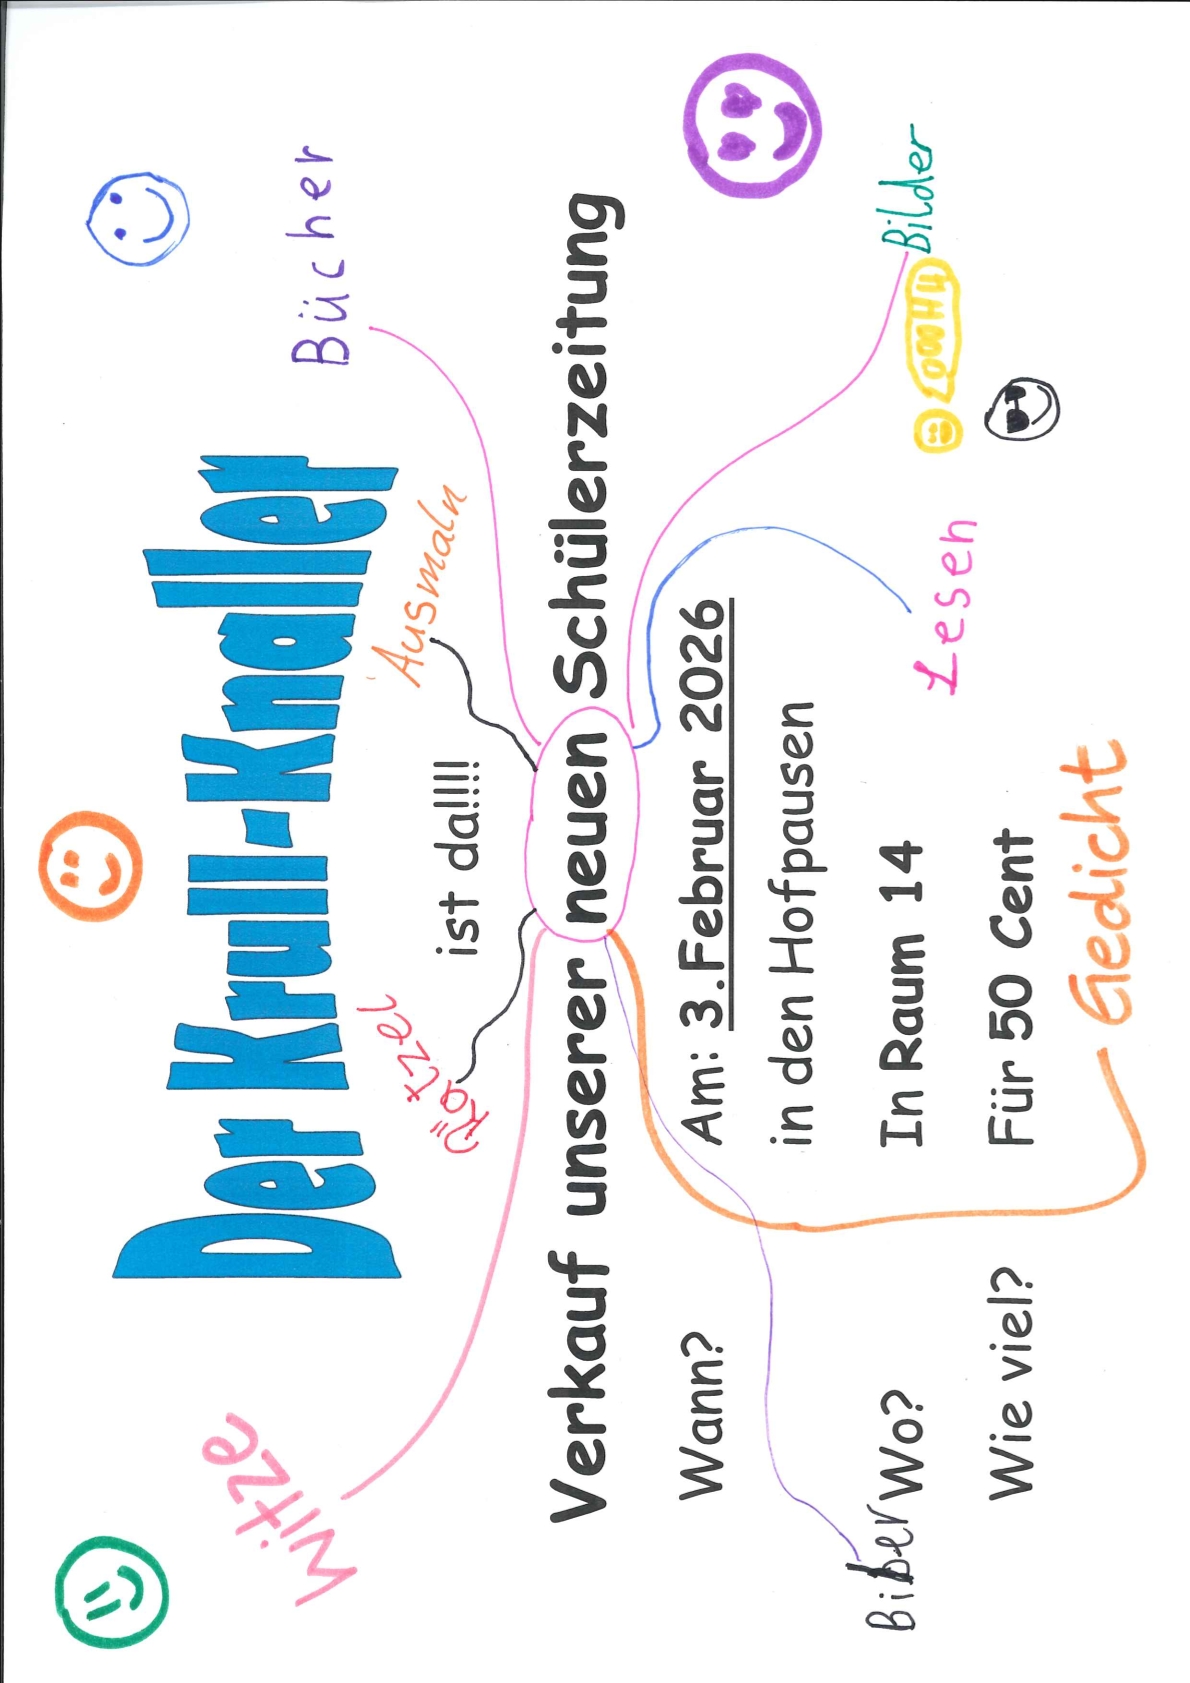 Der Krull-Knaller
Bücher
Witze
Rätzel
ist da!!!!
Ausmaln
Verkauf unserer neuen Schülerzeitung
Wann? Am: 3.Februar 2026
in den Hofpausen
Biber
Wo? In Raum 14
Lesen
Bilder
Wie viel? Für 50 Cent
Gedicht